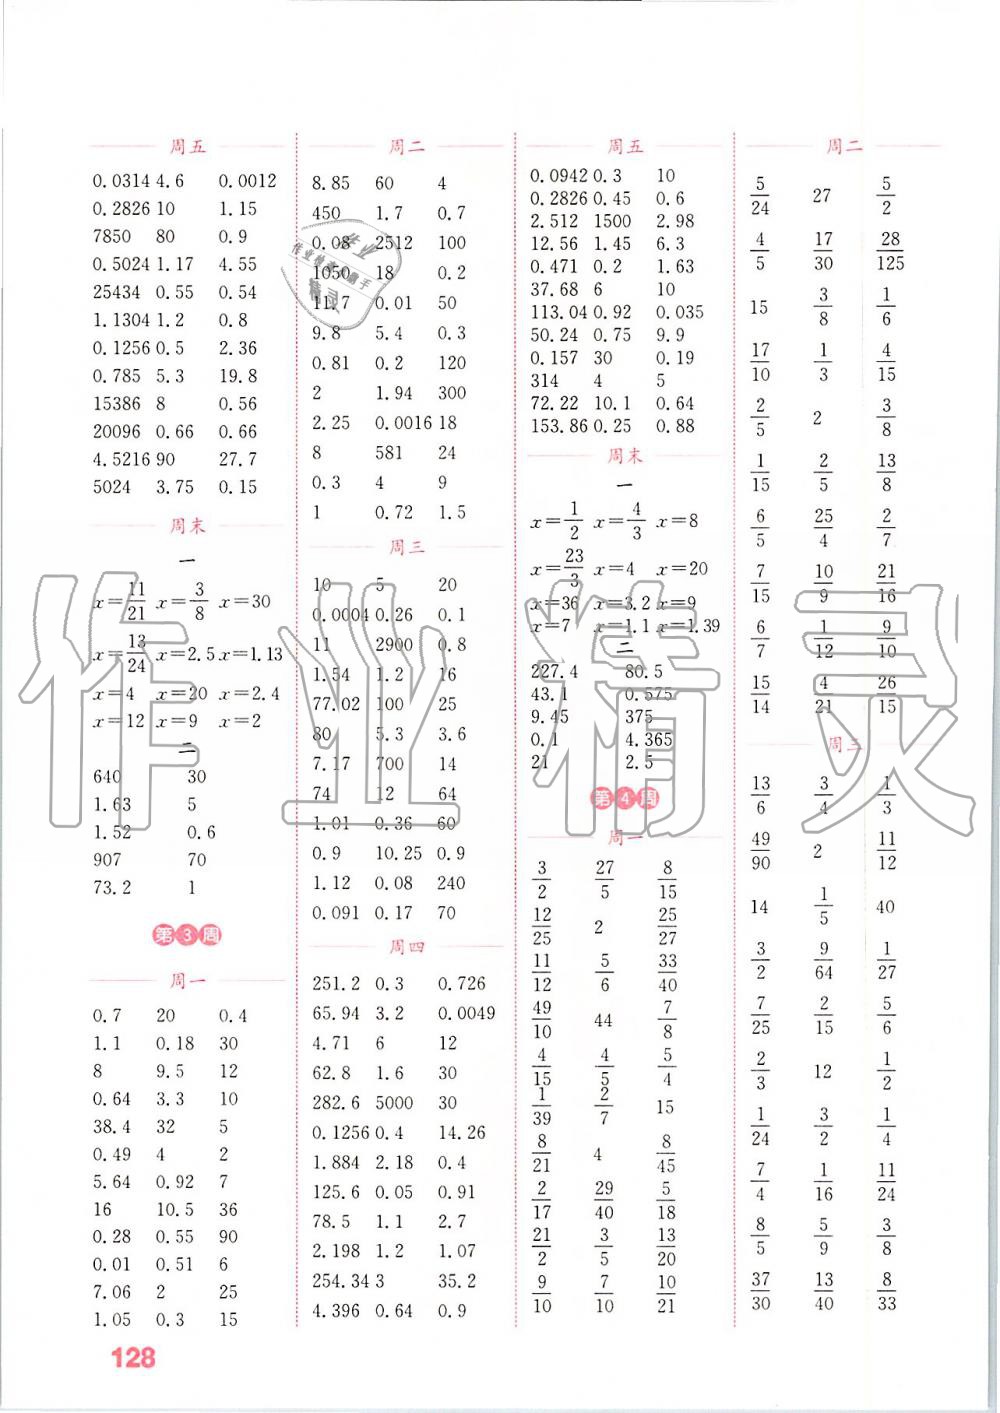 周五
0.0314 4.6 0.0012
0.2826 10 1.15
7850 80 0.9
0.5024 1.17 4.55
25434 0.55 0.54
1.1304 1.2 0.8
0.1256 0.5 2.36
0.785 5.3 19.8
15386 8 0.56
20096 0.66 0.66
4.5216 90 27.7
5024 3.75 0.15
周末
一
x=11/21 x=3/8 x=30
x=13/24 x=2.5 x=1.13
x=4 x=20 x=2.4
x=12 x=9 x=2
二
640 30
1.63 5
1.52 0.6
907 70
73.2 1
第3周
周一
0.7 20 0.4
1.1 0.18 30
8 9.5 12
0.64 3.3 10
38.4 32 5
0.49 4 2
5.64 0.92 7
16 10.5 36
0.28 0.55 90
0.01 0.51 6
7.06 2 25
1.05 0.3 15
周二
8.85 60 4
450 1.7 0.7
0.08 2512 100
1050 18 0.2
11.7 0.01 50
9.8 5.4 0.3
0.81 0.2 120
2 1.94 300
2.25 0.0016 18
8 581 24
0.3 4 9
1 0.72 1.5
周三
10 5 20
0.0004 0.26 0.1
11 2900 0.8
1.54 1.2 16
77.02 100 25
80 5.3 3.6
7.17 700 14
74 12 64
1.01 0.36 60
0.9 10.25 0.9
1.12 0.08 240
0.091 0.17 70
周四
251.2 0.3 0.726
65.94 3.2 0.0049
4.71 6 12
62.8 1.6 30
282.6 5000 30
0.1256 0.4 14.26
1.884 2.18 0.4
125.6 0.05 0.91
78.5 1.1 2.7
2.198 1.2 1.07
254.34 3 35.2
4.396 0.64 0.9
周五
0.0942 0.3 10
0.2826 0.45 0.6
2.512 1500 2.98
12.56 1.45 6.3
0.471 0.2 1.63
37.68 6 10
113.04 0.92 0.035
50.24 0.75 9.9
0.157 30 0.19
314 4 5
72.22 10.1 0.64
153.86 0.25 0.88
周末
一
x=1/2 x=4/3 x=8
x=23/3 x=4 x=20
x=36 x=3.2 x=9
x=7 x=1.1 x=1.39
二
227.4 80.5
43.1 0.575
9.45 375
0.1 4.365
21 2.5
第4周
周一
3/2 27/5 8/15
12/25 2 25/27
11/12 5/6 33/40
49/10 44 7/8
4/15 4/5 5/4
1/39 2/7 15
8/21 4 8/45
2/17 29/40 5/18
21/2 3/5 13/20
9/10 7/10 10/21
周二
5/24 27 5/2
4/5 17/30 28/125
15 3/8 1/6
17/10 1/3 4/15
2/5 2 3/8
1/15 2/5 13/8
6/5 25/4 2/7
7/15 10/9 21/16
6/7 1/12 9/10
15/14 4/21 26/15
周三
13/6 3/4 1/3
49/90 2 11/12
14 1/5 40
3/2 9/64 1/27
7/25 2/15 5/6
2/3 12 1/2
1/24 3/2 1/4
7/4 1/16 11/24
8/5 5/9 3/8
37/30 13/40 8/33
128
作业精灵